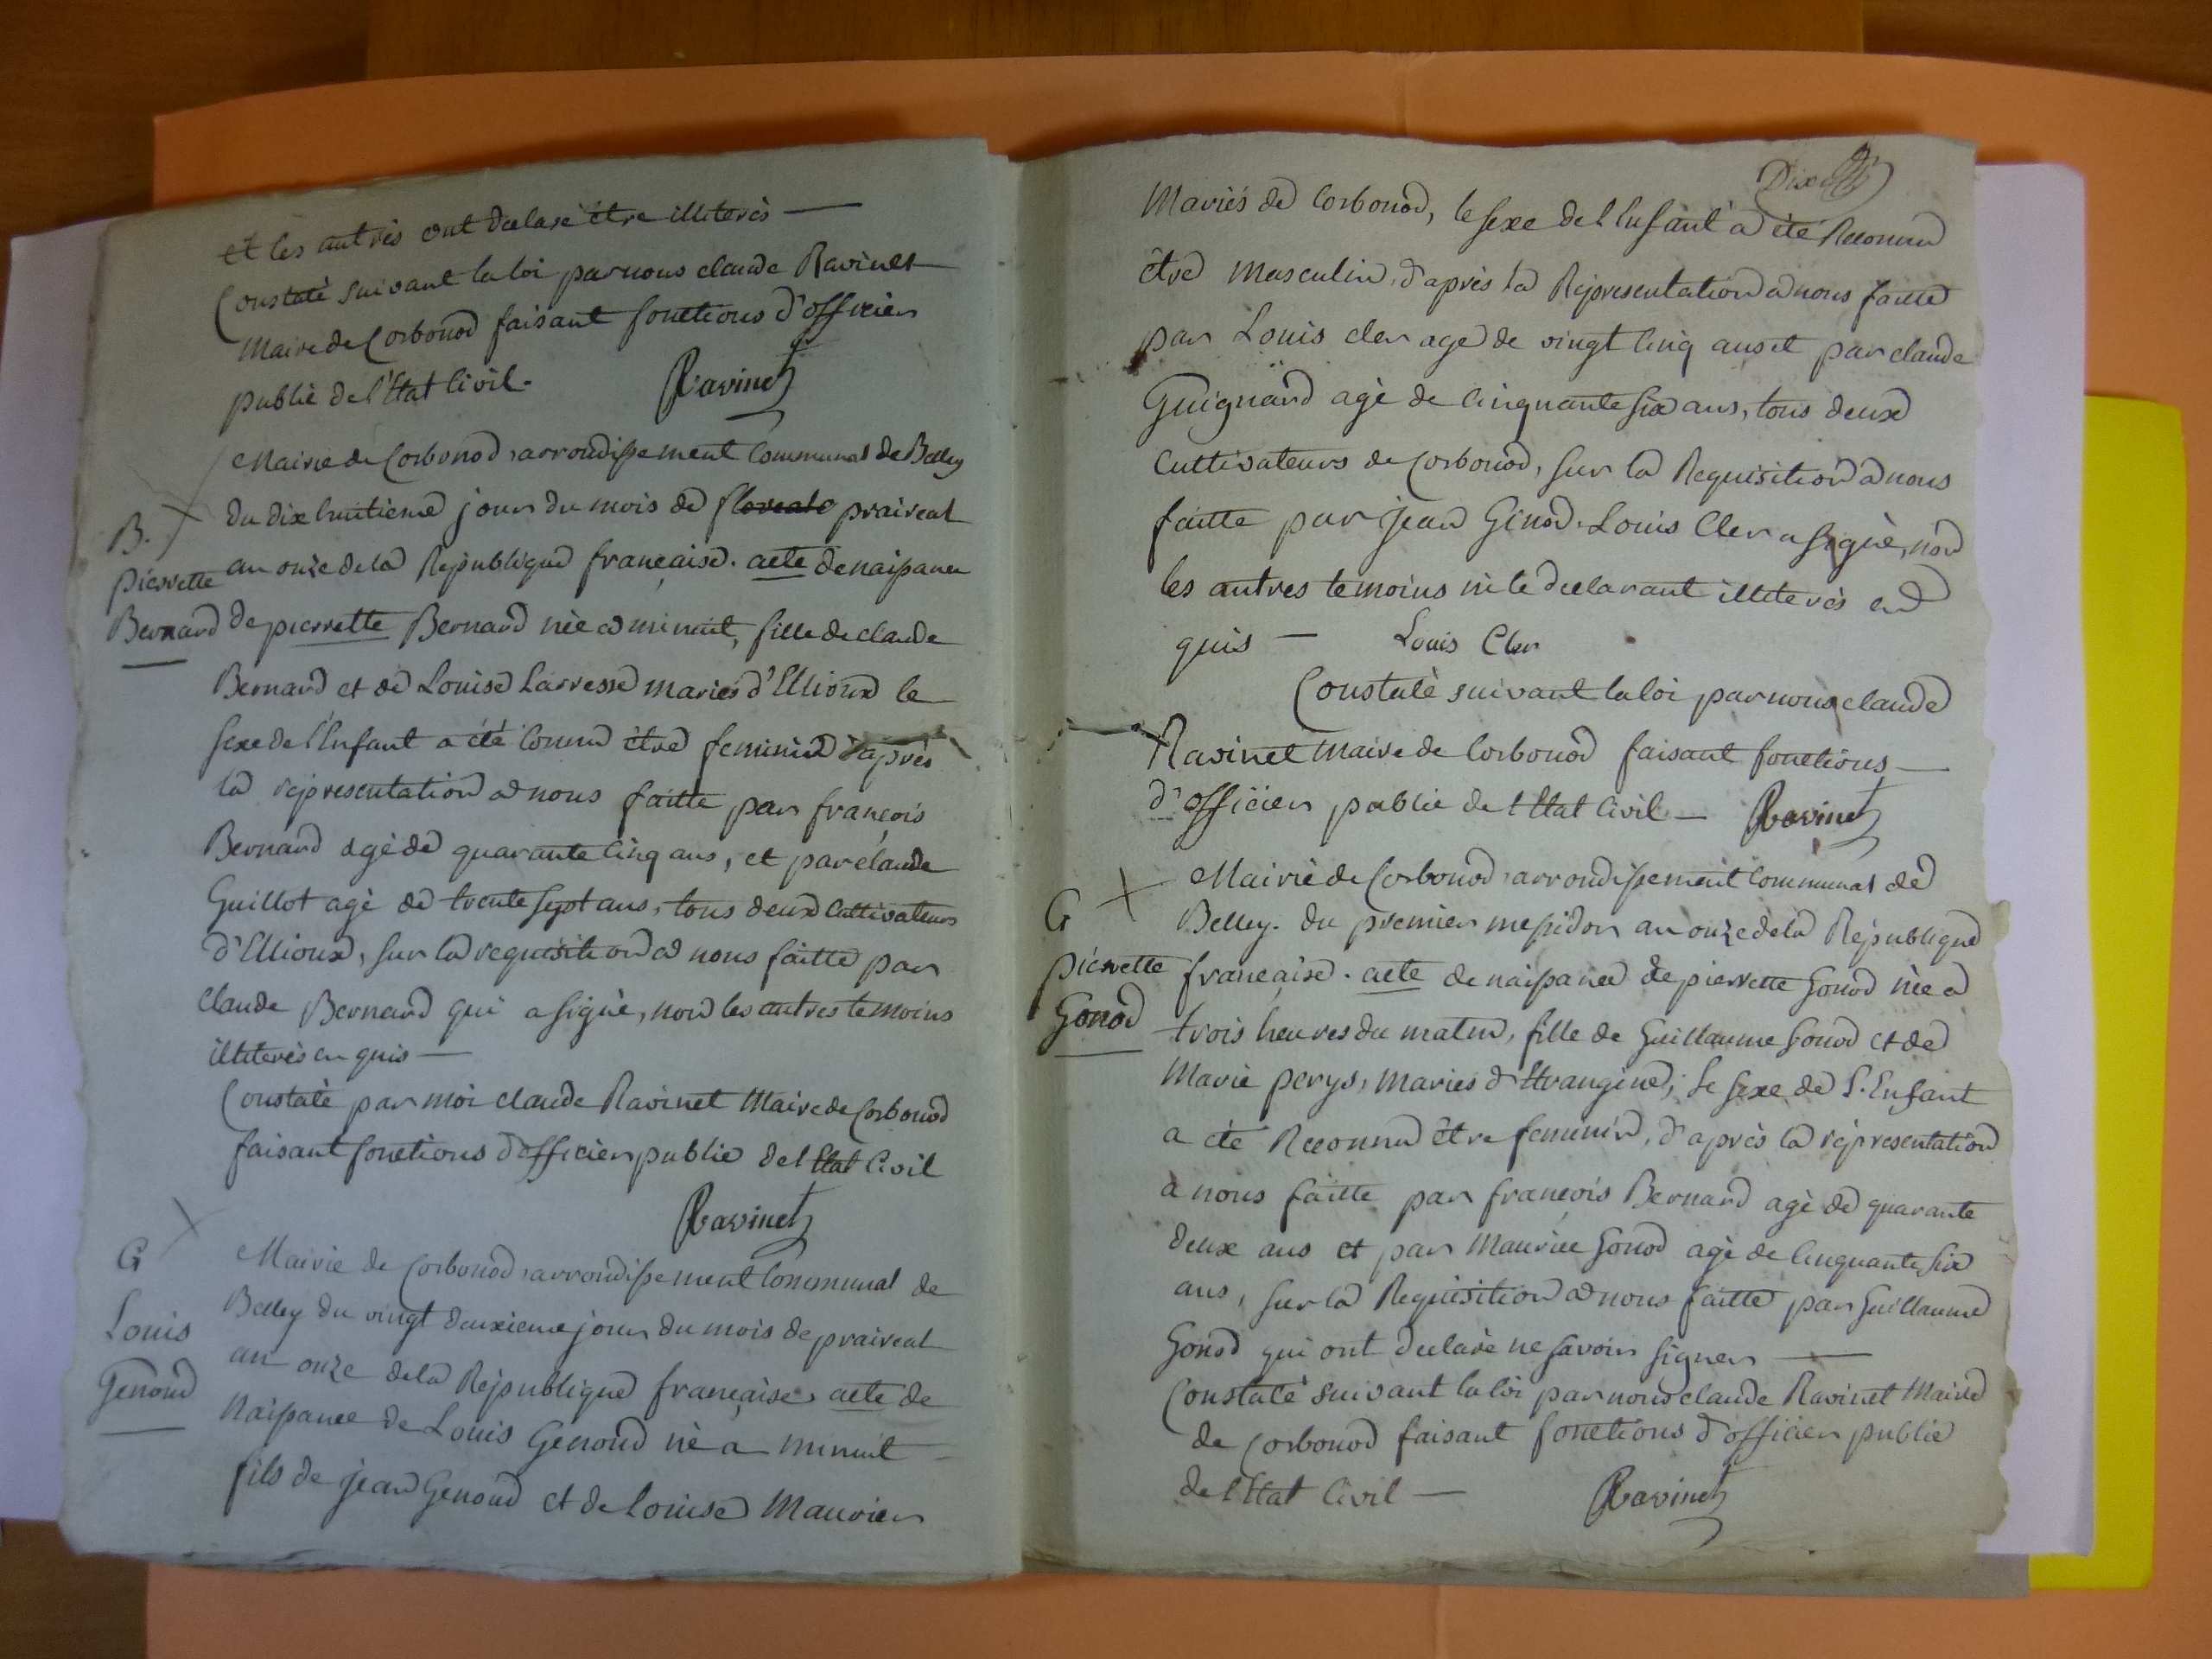 et les autres ont declaré être illiterés —
Constaté suivant la loi par nous claude Ravinet
Maire de Corbonod faisant fonctions d'officier
public de l'Etat Civil. Ravinet
Mairie de Corbonod, arrondissement Communal de Belley
du dix huitieme jour du mois de floreale praireal
B.
an onze de la Republique française. acte de naissance
pierrette
Bernard
de pierrette Bernard née a minuit, fille de claude
Bernard et de Louise Larresse mariés d'Ellioux le
sexe de l'Enfant a été connu être feminin d'après
la representation a nous faitte par françois
Bernard agé de quarante Cinq ans, et par claude
Guillot agé de trente sept ans, tous deux Cultivateurs
d'Ellioux, sur la requisition a nous faitte par
Claude Bernard qui a signé, non les autres temoins
illiterés en quis —
Constaté par moi claude Ravinet Maire de Corbonod
faisant fonctions d'officier public de l'Etat Civil
Ravinet
G
Louis
Genoud
Mairie de Corbonod, arrondissement Communal de
Belley du vingt deuxieme jour du mois de praireal
an onze de la Republique française, acte de
Naissance de Louis Genoud né a minuit
fils de jean Genoud et de Louise Maurier
Dix
Mariés de Corbonod, le sexe de l Enfant a été Reconnu
être masculin, d'après la Representation a nous faitte
par Louis cler agé de vingt Cinq ans et par claude
Guignard agé de Cinquante six ans, tous deux
Cultivateurs de Corbonod, sur la Requisition a nous
faitte par jean Genod. Louis Cler a signé, non
les autres temoins ni le declarant illiterés en
quis — Louis Cler
Constaté suivant la loi par nous claude
Ravinet Maire de Corbonod faisant fonctions —
d'officier public de l Etat Civil — Ravinet
Mairie de Corbonod, arrondissement Communal de
G
Belley. du premier messidor an onze de la Republique
pierrette
Gonod
française. acte de naissance de pierrette Gonod née a
trois heures du matin, fille de Guillaume Gonod et de
Marie perys, mariés d'Etrangine, Le sexe de L'Enfant
a été Reconnu être feminin, d'après la representation
a nous faitte par françois Bernard agé de quarante
deux ans et par Maurice Gonod agé de Cinquante six
ans, sur la Requisition a nous faitte par Guillaume
Gonod qui ont declaré ne savoir signer —
Constaté suivant la loi par nous claude Ravinet Maire
de Corbonod faisant fonctions d'officier public
de l Etat Civil — Ravinet